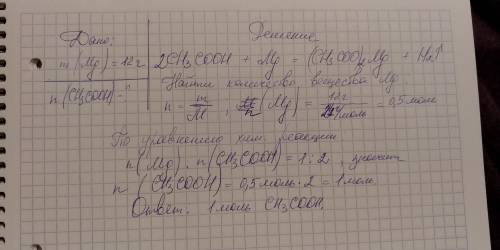 Дано: Решение
m(Mg)=12г 2CH₃COOH + Mg = (CH₃COO)₂Mg + H₂↑
n(CH₃COOH)-? Найти количество вещества Mg
n = m/M , n(Mg) = 12г/24г/моль = 0,5 моль
По уравнению хим. реакции
n(Mg):n(CH₃COOH)=1:2, значит
n(CH₃COOH)=0,5 моль·2=1 моль
Ответ: 1 моль CH₃COOH.